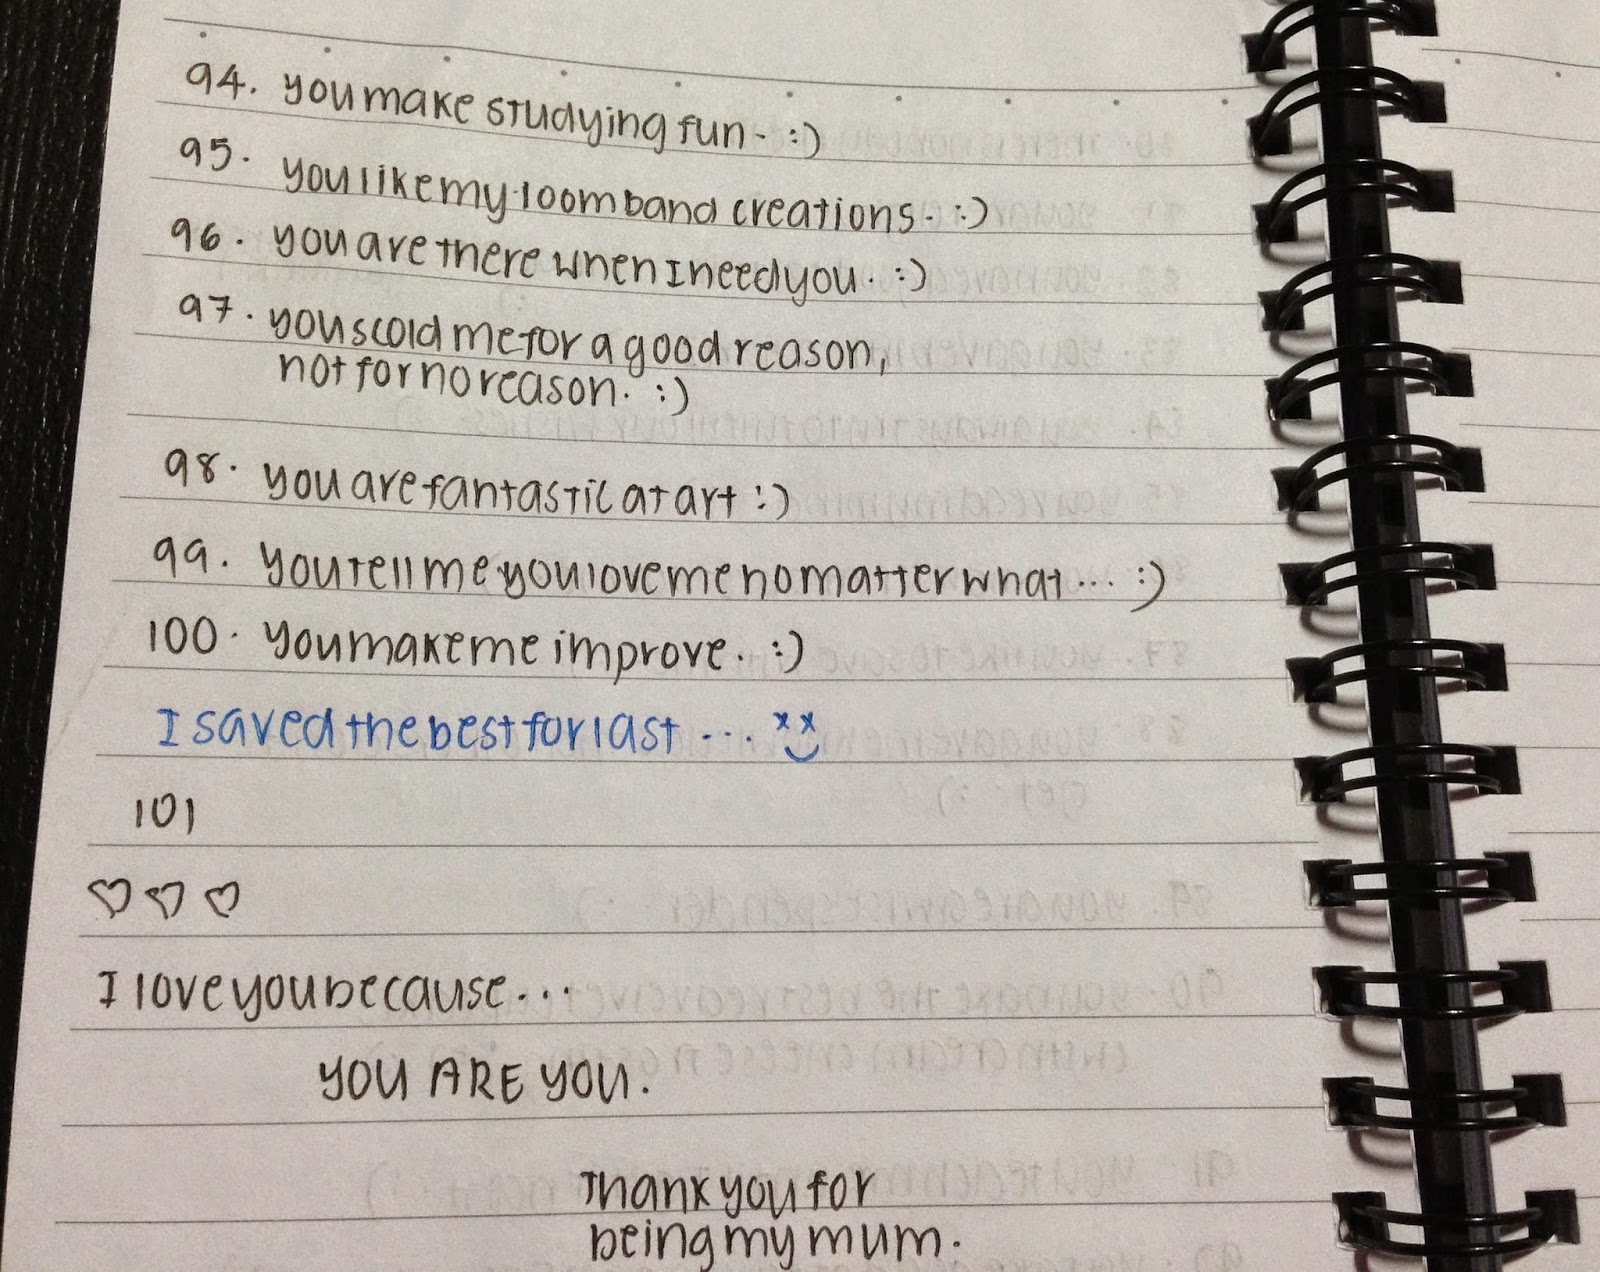 94. you make studying fun. :)
95. you like my loom band creations. :)
96. you are there when I need you. :)
97. you scold me for a good reason,
not for no reason. :)
98. you are fantastic at art :)
99. you tell me you love me no matter what... :)
100. you make me improve. :)
I saved the best for last...
101
I love you because...
YOU ARE YOU.
Thank you for
being my mum.